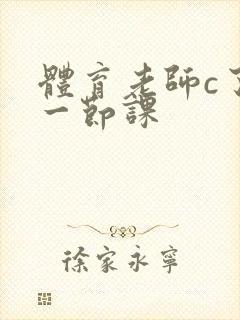 體育老師c了
一節課
徐家永寧